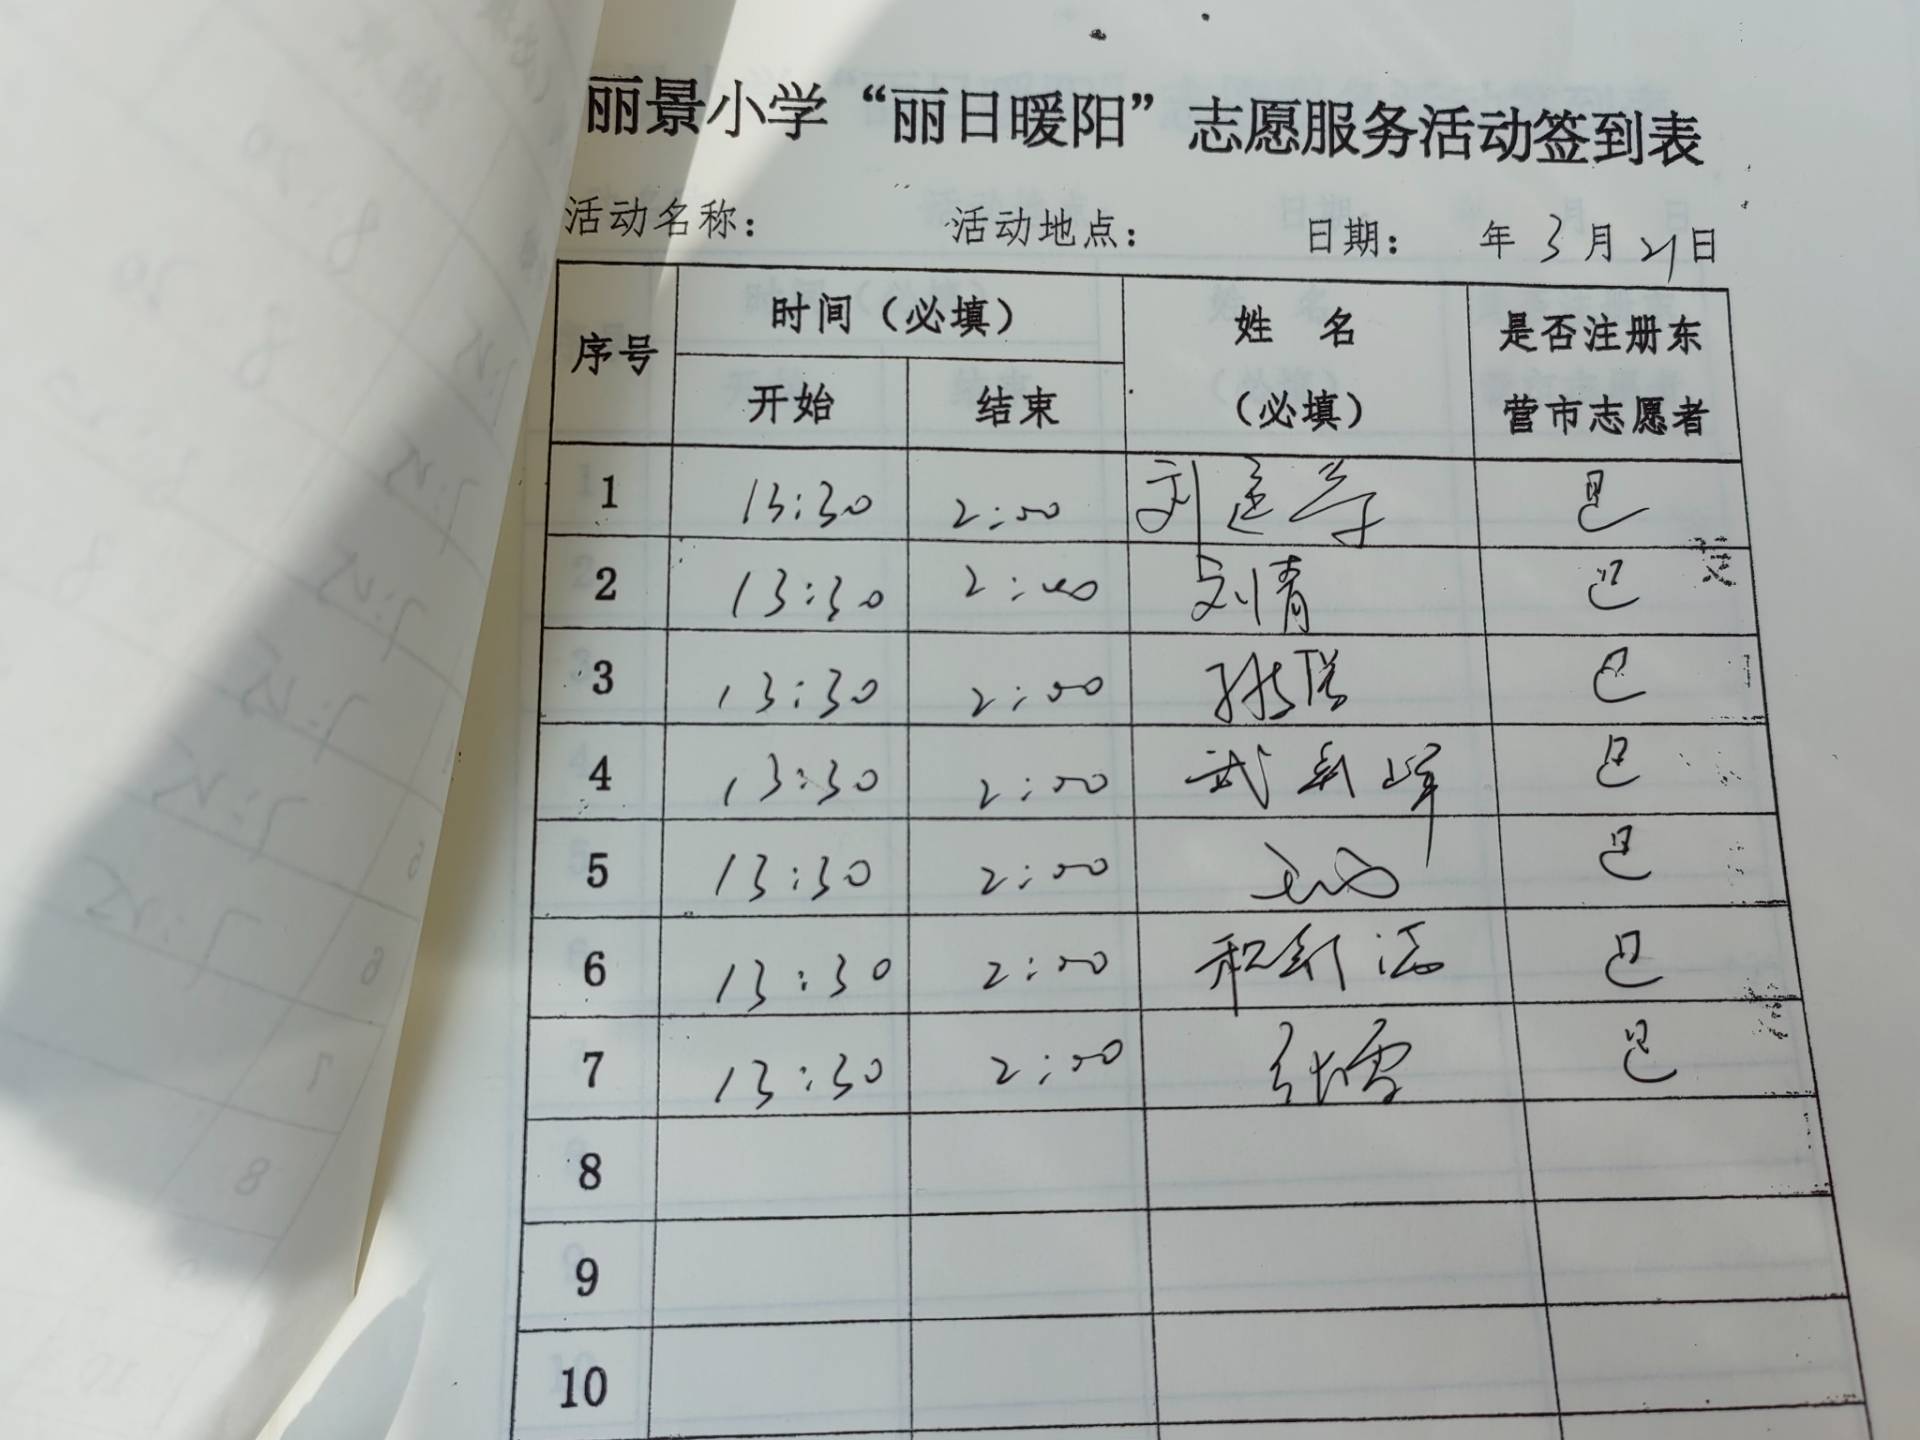 丽景小学“丽日暖阳”志愿服务活动签到表
活动名称： 活动地点： 日期： 年 3 月 21 日
序号 时间（必填） 姓 名（必填） 是否注册东营市志愿者
开始 结束
1 13:30 2:00 刘 是
2 13:30 2:00 刘倩 是
3 13:30 2:00 是
4 13:30 2:00 武 峰 是
5 13:30 2:00 是
6 13:30 2:00 是
7 13:30 2:00 张雪 是
8
9
10